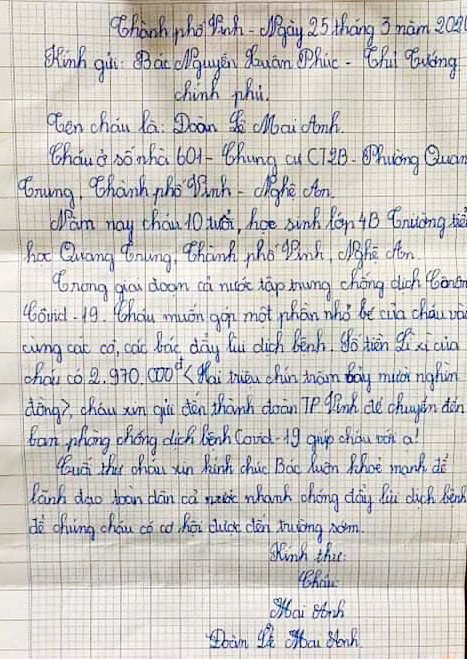 Thành phố Vinh - Ngày 25 tháng 3 năm 2020
Kính gửi: Bác Nguyễn Xuân Phúc - Thủ Tướng
chính phủ.
Tên cháu là: Đoàn Lê Mai Anh.
Cháu ở số nhà 601 - Chung cư CT2B - Phường Quan
Trung, Thành phố Vinh - Nghệ An.
Năm nay cháu 10 tuổi, học sinh lớp 4B Trường tiể
học Quang Trung, Thành phố Vinh, Nghệ An.
Trong giai đoạn cả nước tập trung chống dịch
Côvid-19. Cháu muốn góp một phần nhỏ bé của cháu và
cùng các cô, các bác đẩy lùi dịch bệnh. Số tiền Lì xì của
cháu có 2.970.000đ <Hai triệu chín trăm bảy mươi nghìn
đồng>, cháu xin gửi đến thành đoàn TP Vinh để chuyển đến
ban phòng chống dịch bệnh Covid-19 giúp cháu với ạ!
Cuối thư cháu xin kính chúc Bác luôn khoẻ mạnh để
lãnh đạo toàn dân cả nước nhanh chóng đẩy lùi dịch bệnh
để chúng cháu có cơ hội được đến trường sớm.
Kính thư:
Cháu:
Mai Anh
Đoàn Lê Mai Anh